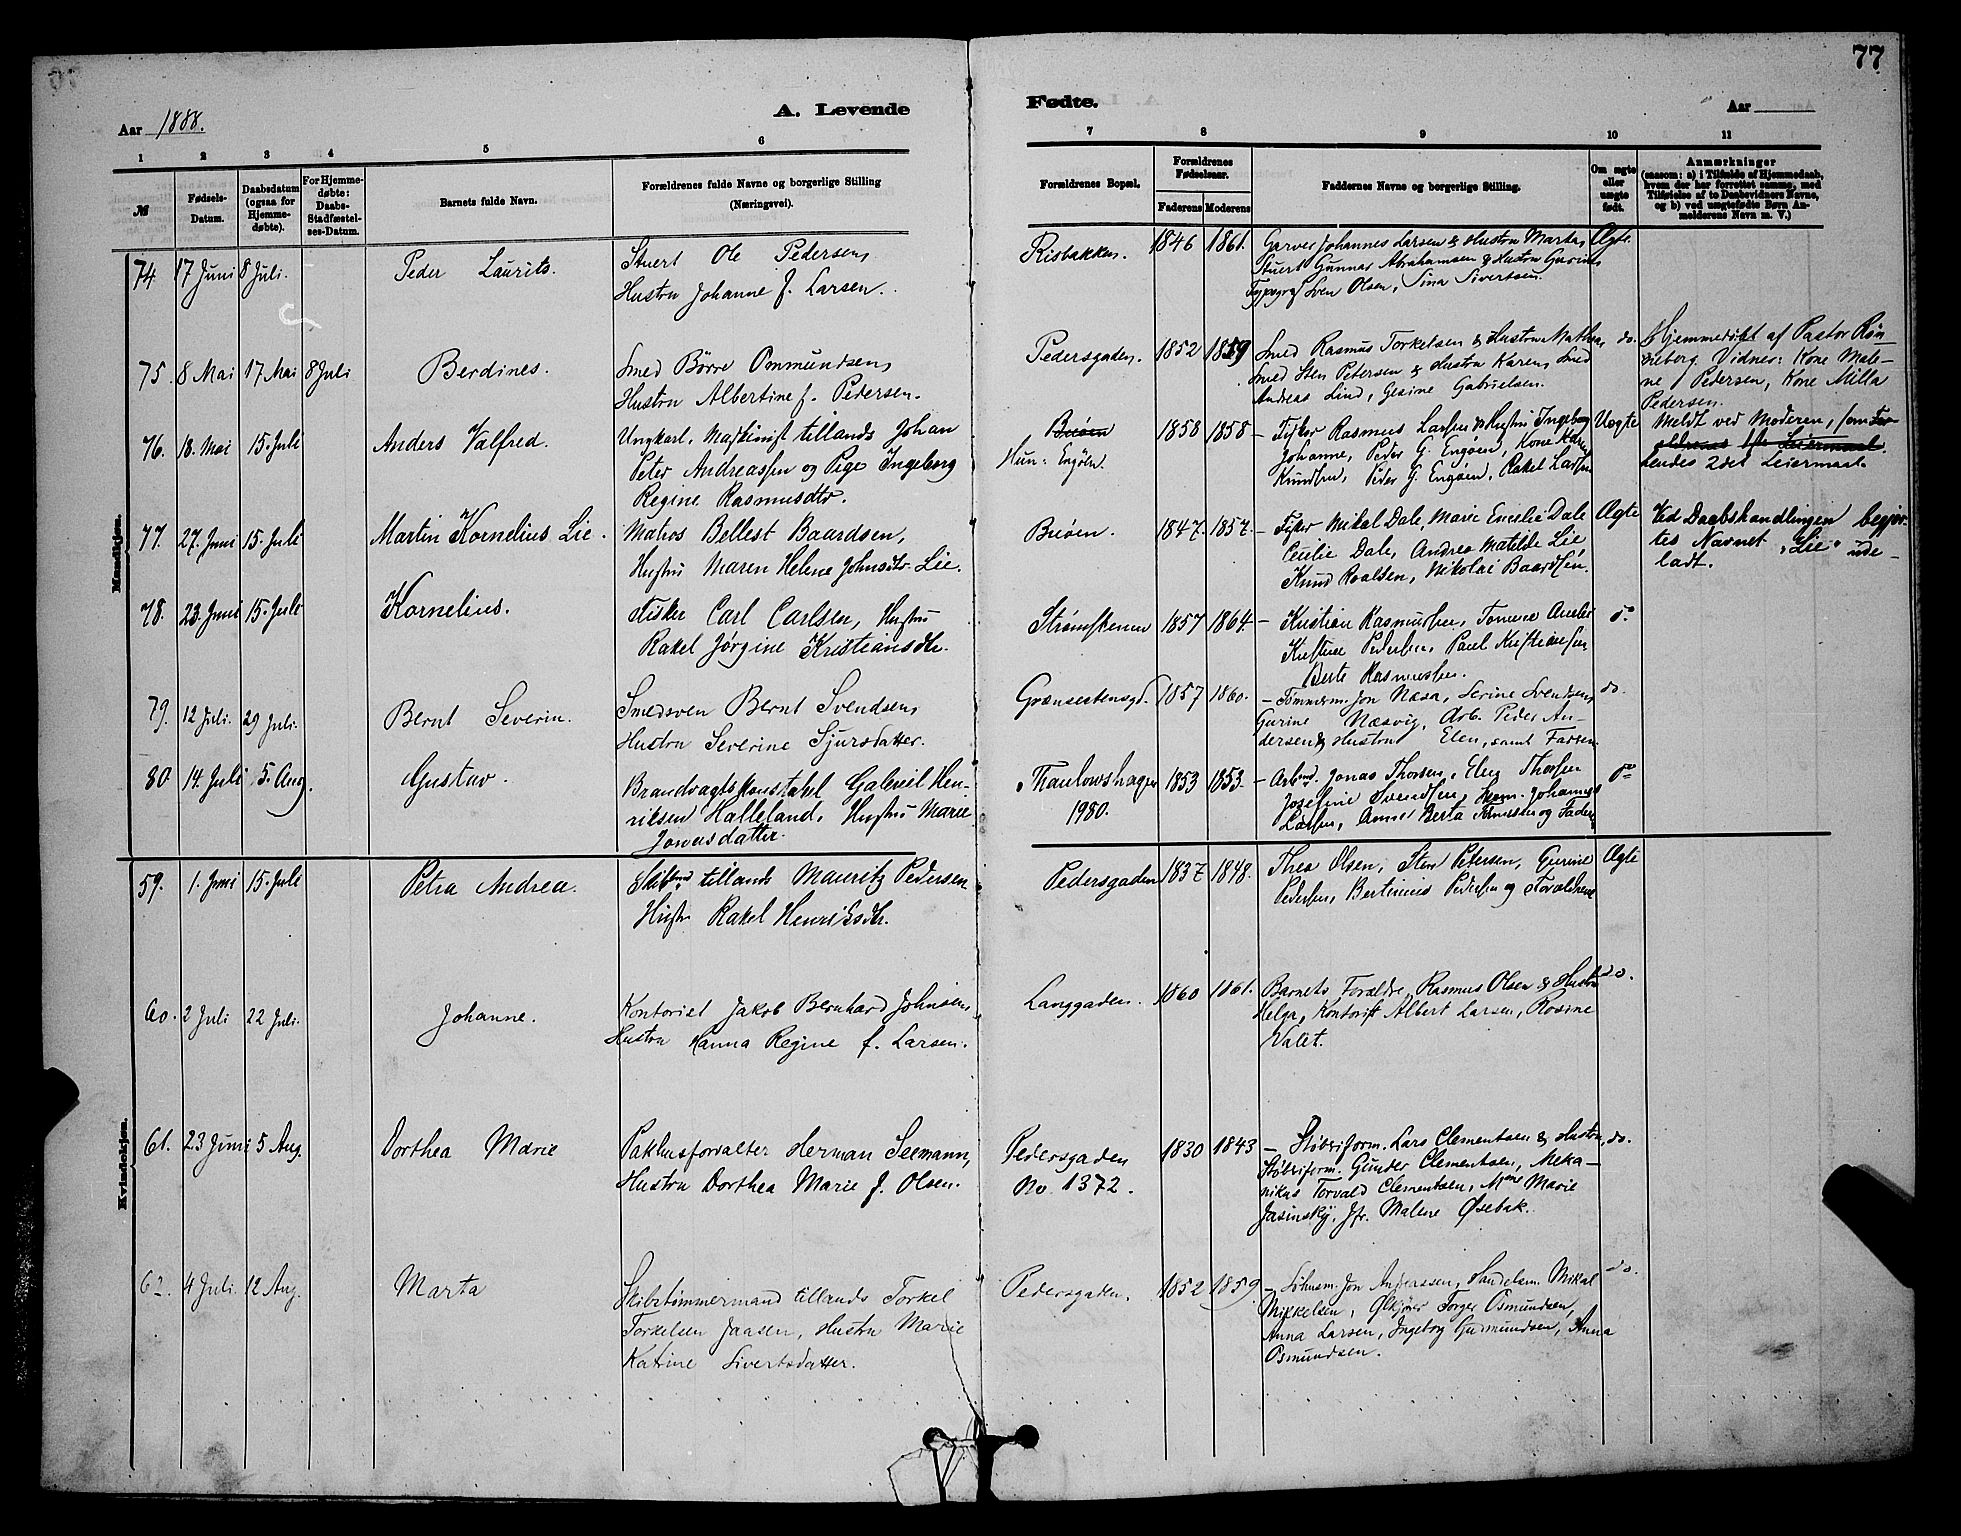 77
Aar 1888.
A. Levende
Fødte.
Aar
1 2 3 4 5 6
7 8 9 10 11
№
Fødsels-Datum.
Daabsdatum (ogsaa for Hjemmedøbte).
For Hjemmedøbte: Daabs-Stadfæstelses-Datum.
Barnets fulde Navn.
Forældrenes fulde Navne og borgerlige Stilling (Næringsvei).
Forældrenes Bopæl.
Forældrenes Fødselsaar.
Faderens Moderens
Faddernes Navne og borgerlige Stilling.
Om ægte eller uægte født.
Anmærkninger
(saasom: a) i Tilfælde af Hjemmedaab, hvem der har forrettet samme, med Tilføielse af to Daabsvidners Navne, og b) ved uægtefødte Børn Anmelderens Navn m. V.)
Mandkjøn.
74 17 Juni 8 Juli. Peder Laurits. Stuert Ole Pedersen,
Hustru Johanne f. Larsen.
Risbakken. 1846 1861. Garver Johannes Larsen & Hustru Marta, Ægte.
Stuert Gunnar Abrahamsen & Hustru Gurine
Typograf Sven Olsen, Sina Sivertsen.
75. 8 Mai 17 Mai 8 Juli Berdines. Smed Børre Ommundsen,
Hustru Albertine f. Pedersen.
Pedersgaden. 1852 1859 Smed Rasmus Torkelsen & Hustru Mathea, do. Hjemmedøbt af Pastor Røn-
Smed Sten Petersen & Hustru Karen, Smed neberg Vidner: Kone Male-
Andreas Lind, Gesine Gabrielsen. ne Pedersen, Kone Milla
Pedersen.
76. 18. Mai 15. Juli Anders Valfred. Ungkarl, Maskinist tillands Johan
Peter Andreassen og Pige Ingeborg
Regine Rasmusdtr.
Buøen 1858 1858 – Fisker Rasmus Larsen & Hustru Ingeborg Uægte Meldt ved Moderen,
Hun: Engøen. Johanne, Peder G. Engøen, Kone Karen
Knudsen, Peder G. Engøen, Rakel Larsen hendes 2det Leiermaal.
77. 27. Juni 15. Juli Martin Kornelius Lie. Matros Bellest Baardsen,
Hustru Maren Helene Johnsdtr. Lie.
Buøen. 1847. 1857. – Fisker Mikal Dale, Marie Cecilie Dale Ægte Ved Daabshandlingen begjær-
Cecilie Dale, Andrea Matilde Lie tes Navnet "Lie" ude-
Knud Roalsen, Nikolai Baardsen. ladt.
78. 23. Juni 15. Juli Kornelius. Fisker Carl Carlsen, Hustru
Rakel Jørgine Kristiansdtr.
Strømstenen 1857 1864. – Kristian Rasmussen, Tomine do
Pedersen, Paul Kristiansen
Berte Rasmussen.
79. 12 Juli. 29 Juli. Bernt Severin. Smedsven Bernt Svendsen,
Hustru Severine Sjursdatter.
Grænsestensgd. 1857 1860. – Tømmerm. Jon Næsø, Serine Svendsen, do.
Gurine Næsvig, Arb. Peder An-
dersen & Hustru Elen, samt Faderen
80. 14. Juli 5. Aug. Gustav. Brandvagtskonstabel Gabriel Hen-
riksen Halleland, Hustru Marie
Jonasdatter.
Thaulowshagen 1853 1853. – Arbmd. Jonas Thorsen, Elen Thorsen do
1980. Josefine Svendsen, Johannes
Larsen, Anne Berta og Fader
Kvindekjøn.
59. 1. Juni 15. Juli Petra Andrea. Skibtmd. tillands Mauritz Pedersen
Hustru Rakel Henriksdtr.
Pedersgaden 1837 1848. Thea Olsen, Sten Petersen, Gurine Ægte
Pedersen, Bertinius Pedersen og Forældrene
60. 2 Juli 22 Juli. Johanne. Kontorist Jakob Bernhard Johnsen,
Hustru Hanna Regine f. Larsen.
Langgaden. 1860 1861. Barnets Forældre, Rasmus Olsen & Hustru do.
Helga, Kontorist Albert Larsen, Rosine
Valet.
61. 23 Juni 5 Aug. Dorthea Marie Pakhusforvalter Herman Seemann,
Hustru Dorthea Marie f. Olsen.
Pedersgaden 1830 1843 – Støberiform. Lars Clementsen & Hustru, do.
No. 1372. Støberiform. Gunder Clementsen, Meka-
nikus Torvald Clementsen, Mme Marie
Jasinsky, Jfr. Malene Øsebak.
62. 4 Juli. 12 Aug. Marta Skibstømmermand tillands Torkel
Torkelsen Jaasen, Hustru Marie
Katrine Sivertsdatter.
Pedersgaden. 1852 1859 – Jon Anderssen, Handelsm. Mikal do.
Mikkelsen, Ølkjører Torger Osmundsen,
Anna Larsen, Ingeborg Gudmundsen, Anna
Osmundsen.